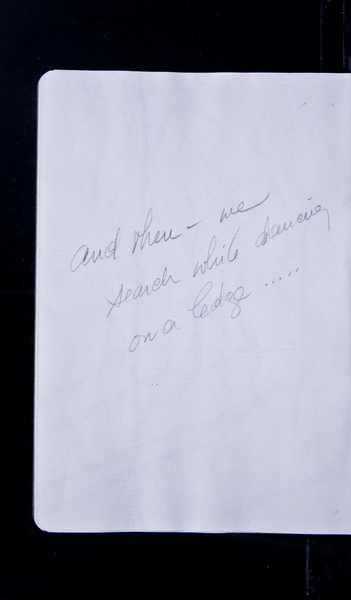 and then – we
search while dancing
on a ledge .....